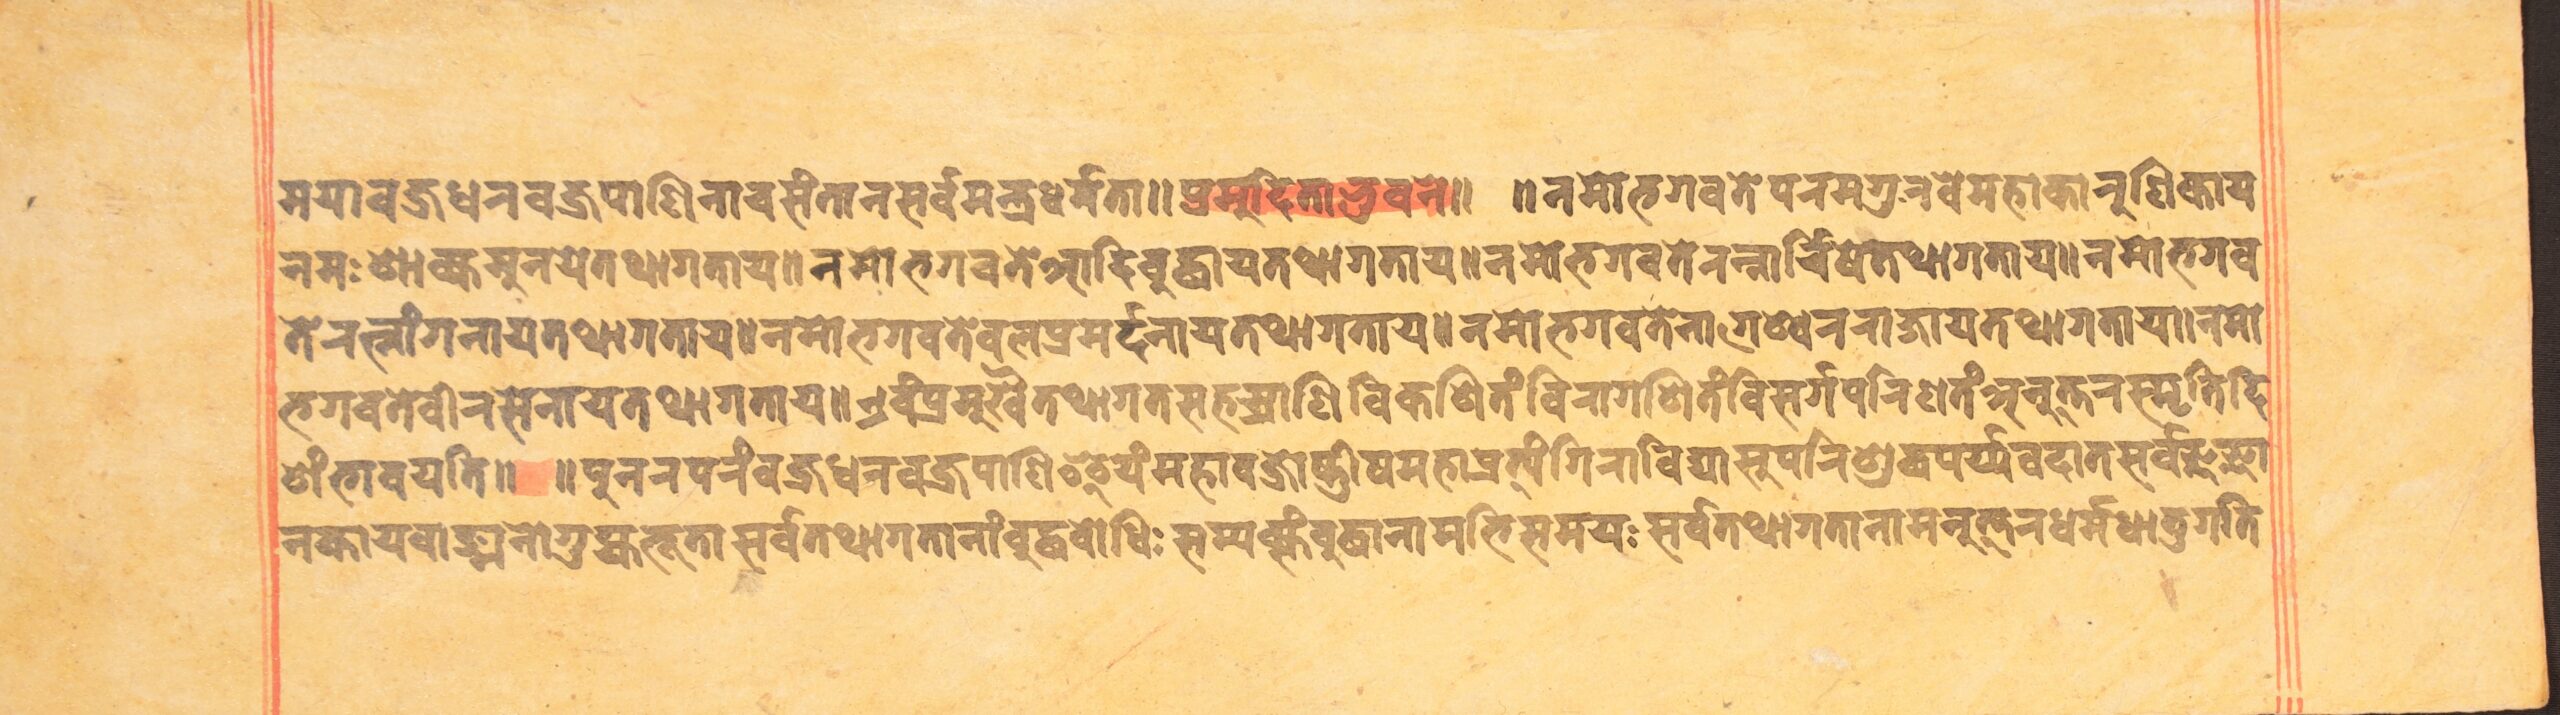 मयावज्रधनवज्रपाणिनावसंतानसर्वमन्त्रधर्मता॥प्रमुदिताभुवने॥ ॥नमोभगवतेपनमगुनवेमहाकानुणिकाय
नमःशाक्यमुनयेतथागताय॥नमोभगवतेआदिबुद्धायतथागताय॥नमोभगवतेनत्नार्चिषेतथागताय॥नमोभगव
तेनत्नांगनायतथागताय॥नमोभगवतेवलप्रमर्दनायतथागताय॥नमोभगवतेनागेश्वेननाजायतथागताय॥नमो
भगवतेवीनसेनायतथागताय॥एवंप्रमुखैतथागतसहस्राणिविकशितंविनागशितंविसर्गपनिशतंअनुत्तनस्मृतिदि
शंभावयति॥ ॥पुननपनंवज्रधनवज्रपाणिमहावज्रोष्णीषमहाप्रत्यंगिनाविद्यासुपनिशुद्धपर्य्यवदातसर्वज्ञज्ञा
नकायवाङ्मनोगुह्यभूतासर्वतथागतानांबुद्धवोधिःसम्यक्संबुद्धानामभिसमयःसर्वतथागतानामनुत्तनधर्मधातुगति